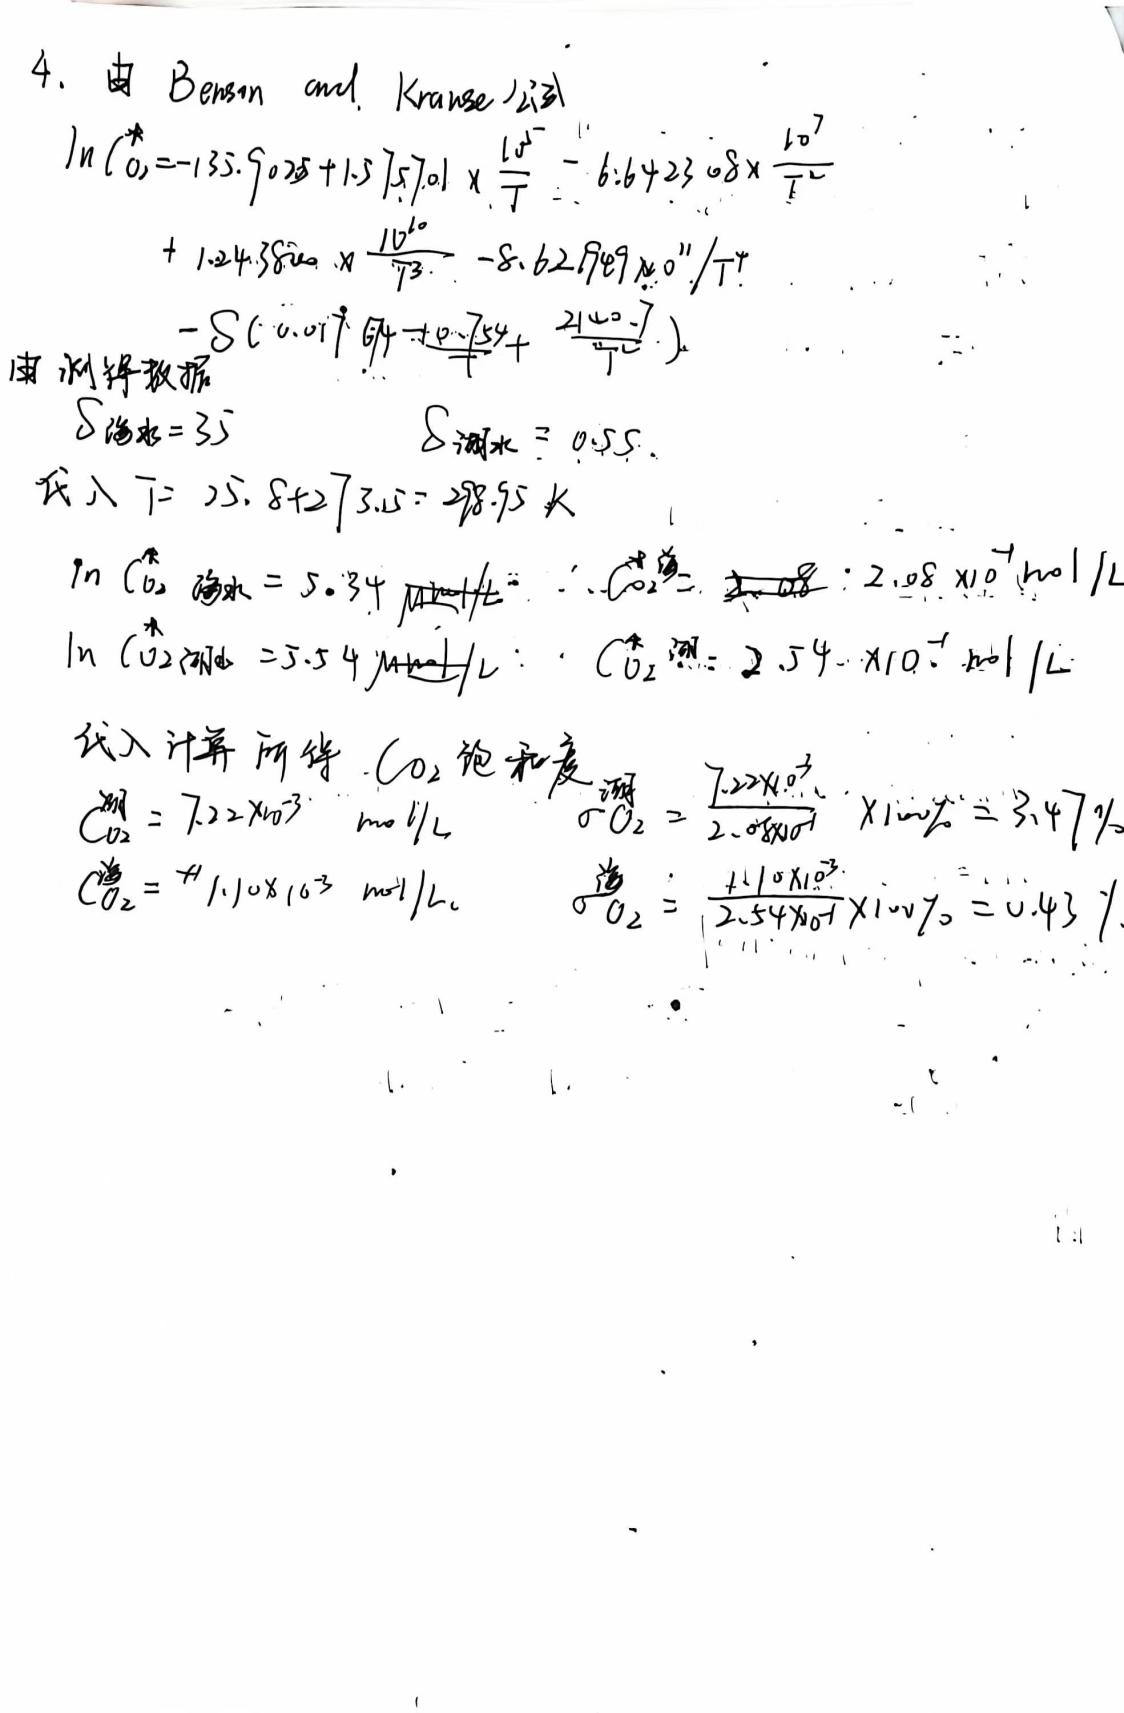 4. 由 Benson and Krause 公式
ln C*O₂ = -135.9025 + 1.575701 × 10⁵/T - 6.642308 × 10⁷/T²
+ 1.243800 × 10¹⁰/T³ - 8.621949×10¹¹/T⁴
- S(0.017674 - 10.754/T + 2140.7/T²)
由测得数据
S海水 = 35 S湖水 = 0.55.
代入 T = 25.8+273.15 = 298.95 K
ln C*O₂ 海水 = 5.34 ∴ C*O₂海 = 2.08 ×10⁻¹ mol/L
ln C*O₂湖水 = 5.54 ∴ C*O₂湖 = 2.54 ×10⁻¹ mol/L
代入计算所得 CO₂ 饱和度
C湖O₂ = 7.22×10⁻³ mol/L σ湖O₂ = 7.22×10⁻³/2.08×10⁻¹ ×100% = 3.47%
C海O₂ = 1.10×10⁻³ mol/L. σ海O₂ = 1.10×10⁻³/2.54×10⁻¹ ×100% = 0.43%